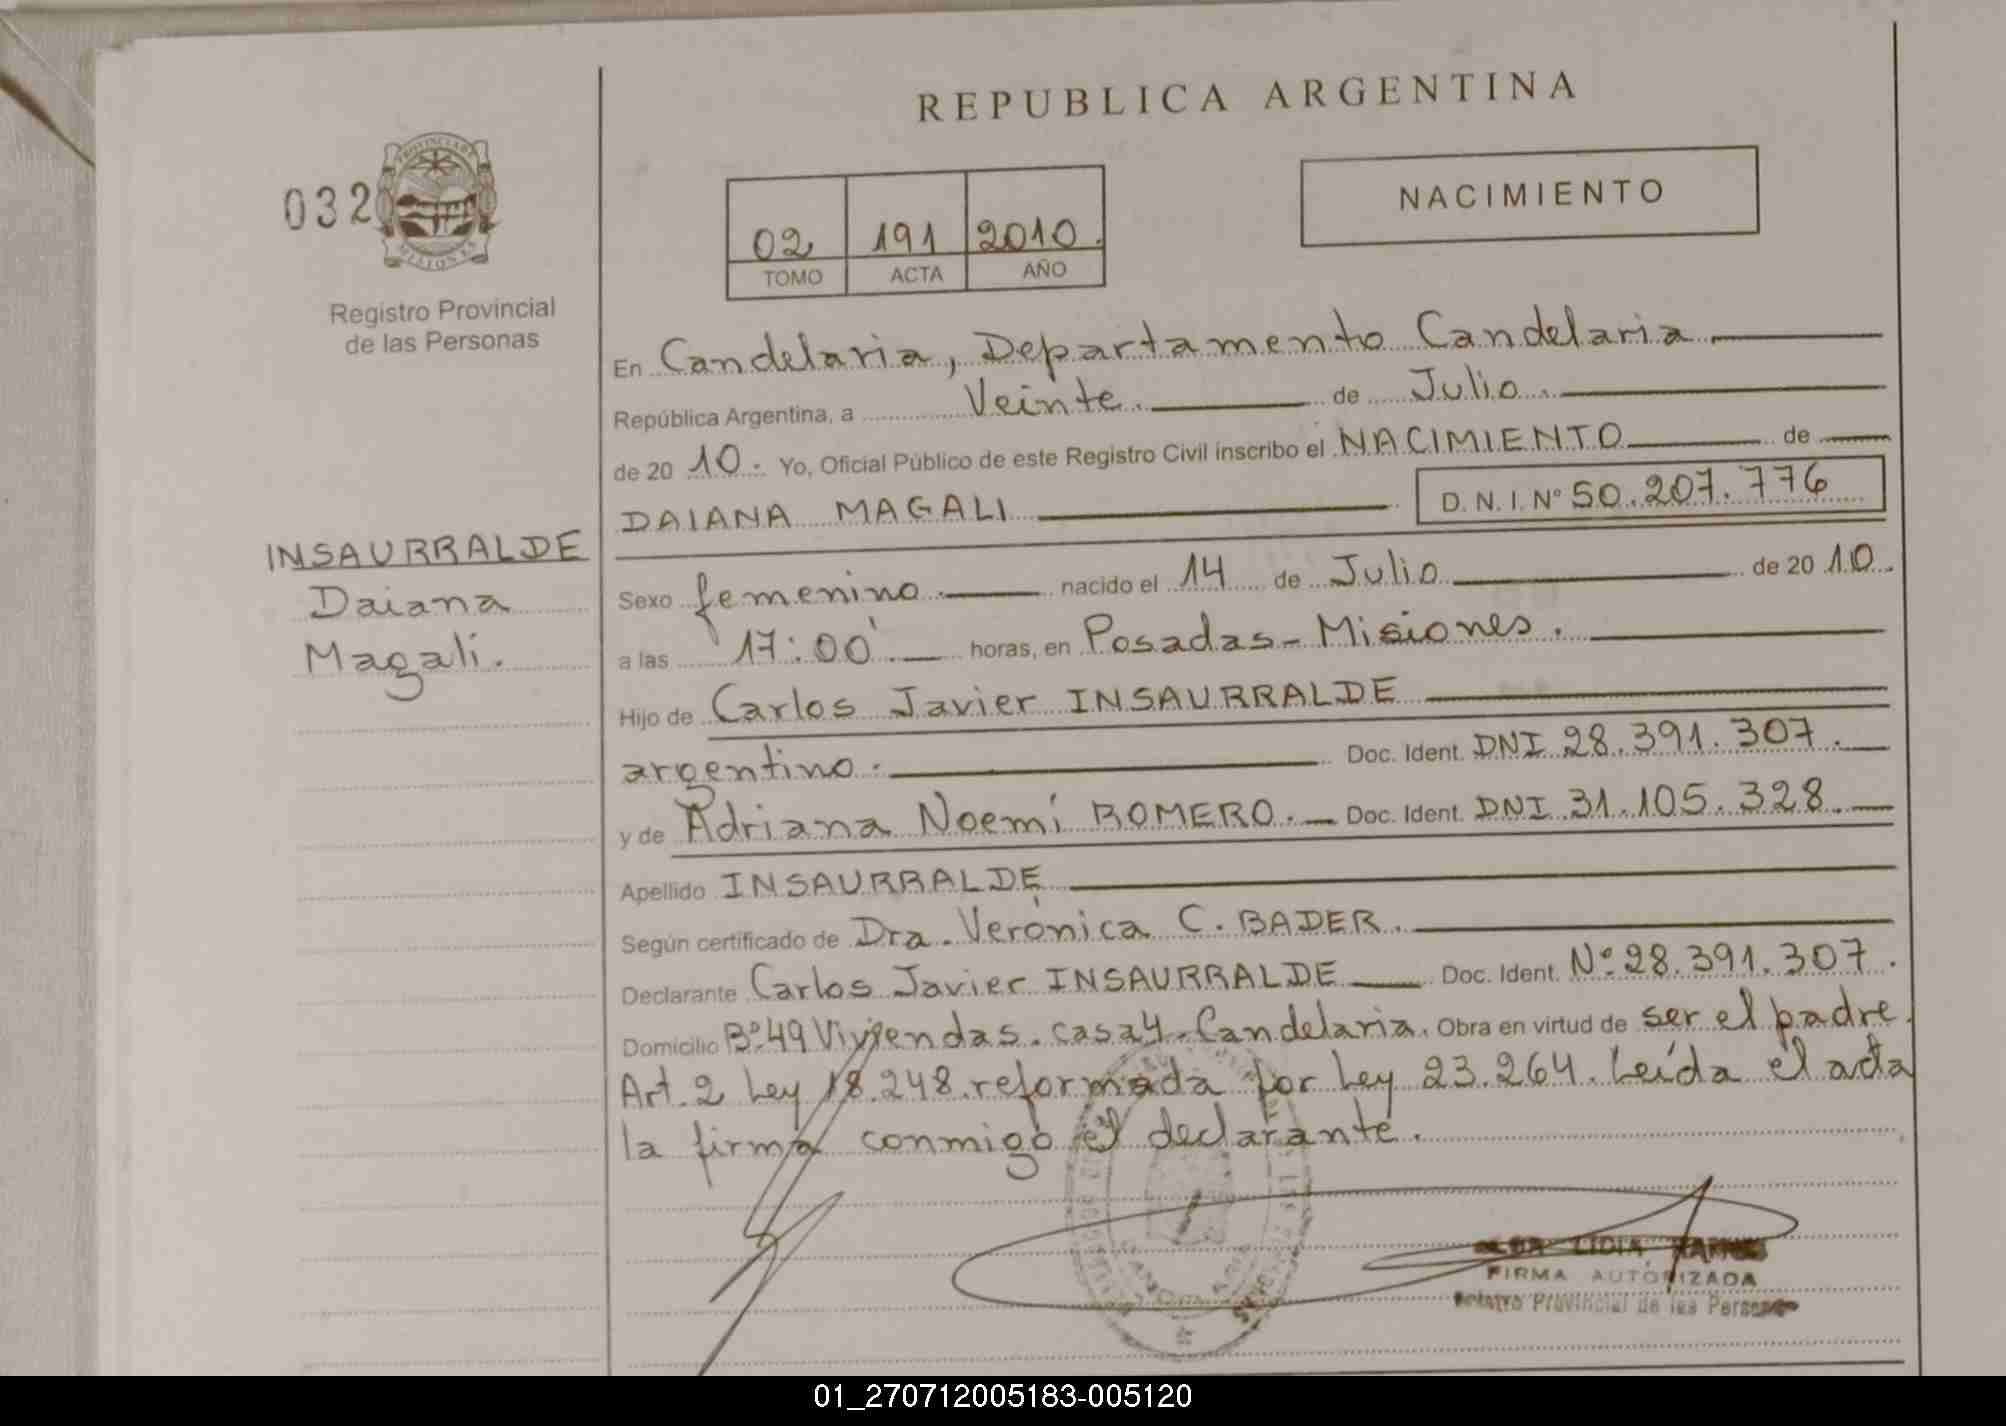 REPUBLICA ARGENTINA
032
PROVINCIA DE
MISIONES
Registro Provincial
de las Personas
02 191 2010.
TOMO ACTA AÑO
NACIMIENTO
En Candelaria, Departamento Candelaria
República Argentina, a Veinte. de Julio.
de 20 10. Yo, Oficial Público de este Registro Civil inscribo el NACIMIENTO de
DAIANA MAGALI D.N.I. Nº 50.207.776
INSAURRALDE
Daiana
Magali.
Sexo femenino. nacido el 14 de Julio de 20 10.
a las 17:00' horas, en Posadas-Misiones.
Hijo de Carlos Javier INSAURRALDE
argentino. Doc. Ident. DNI 28.391.307.
y de Adriana Noemí ROMERO. Doc. Ident. DNI 31.105.328.
Apellido INSAURRALDE
Según certificado de Dra. Verónica C. BADER.
Declarante Carlos Javier INSAURRALDE Doc. Ident. Nº 28.391.307.
Domicilio Bº 49 Viviendas. casa 4. Candelaria. Obra en virtud de ser el padre.
Art. 2 Ley 18.248. reformada por Ley 23.264. Leída el acta
la firma conmigo el declarante.
LIDIA
FIRMA AUTORIZADA
Registro Provincial de las Personas
01_270712005183-005120